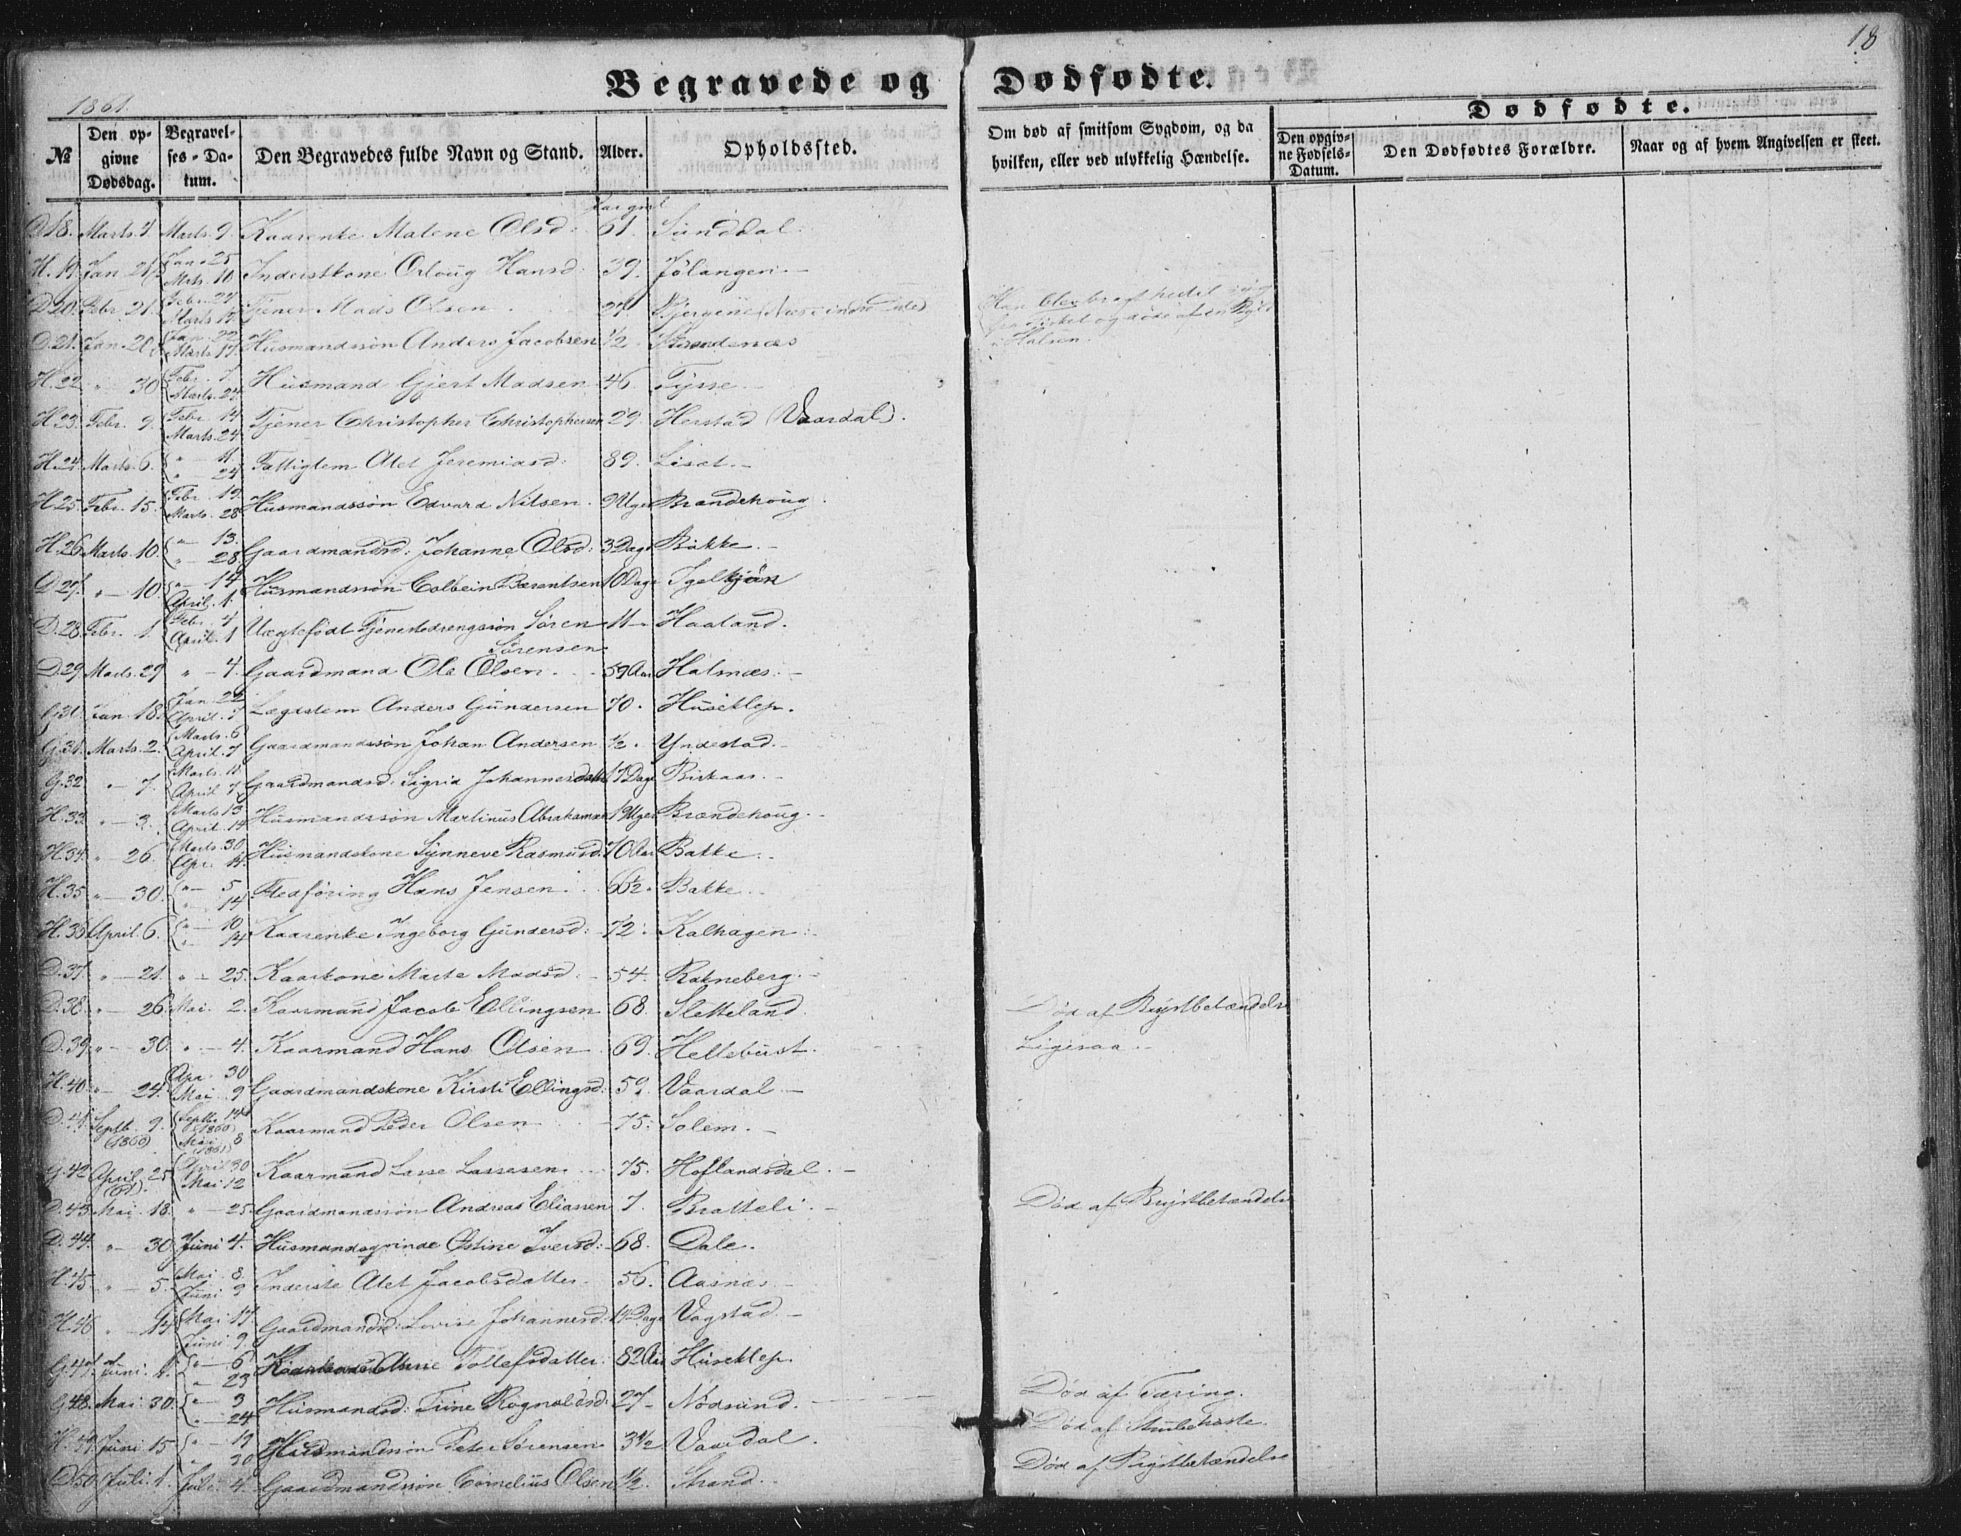 18
Begravede og Dødfødte.
1861.
Dødfødte.
№
Den opgivne Dødsdag.
Begravelses-Datum.
Den Begravedes fulde Navn og Stand.
Alder.
Opholdssted.
Om død af smitsom Sygdom, og da hvilken, eller ved ulykkelig Hændelse.
Den opgivne Fødsels-Datum.
Den Dødfødtes Forældre.
Naar og af hvem Angivelsen er skeet.
D.18. Marts 7. Marts 9. Kaarenke Malene Olsd: 61. Sunddal.
H.19. Jan 21. Jan. 25 Mrts. 10. Inderstkone Orloug Hansd: 39. Jølangen.
D.20. Febr. 21. Febr. 27 Marts Tjener Mads Olsen 27.
D.21. Jan. 20. Jan. 22 Marts 17. Husmandssøn Anders Jacobsen ½. Strandenæs
H.22 " 30 Febr. 7 Marts. 24 Husmand Gjert Madsen 46. Tysse.
H.23. Febr. 9. Febr. 14 Marts. 24 Tjener Christopher Christophersen 29. Herstad (Vaardal).
H.24. Marts. 6. " 11. " 24 Fattiglem Alet Jeremiasd: 89. Liset.
H.25 Febr. 15. Febr. 19. Marts. 28 Husmandssøn Edvard Nilsen. 9 Uger Brandehoug.
H.26 Marts. 10. " 13. " 28 Gaardmandsd: Johanne Olsd: 3 Dage Bakke.
D.27. " 10. " 14 April. 1. Husmandssøn Colbein Berentsen 10 Dage Igelkjøn
D.28. Febr. 1 Febr. 4 April. 1 Uægtefødt Tjenestedrengssøn Søren Sørensen 11 Haaland.
D.29. Marts. 29 " 4. Gaardmand Ole Olsen. 59 Aar Halsnæs.
Jan. 18. Jan. 22 April. 7 Lægdslem Anders Gundersen 70. Huseklep.
G.31. Marts. 2. Marts. 6 April. 7 Gaardmandssøn Johan Andersen ½. Yndestad.
G.32 " 7. Marts. 11. April 7 Gaardmandsd: Sigrid Johannesdatter 17 Dage Birkaas.
H.33. " 3. Marts 13 April. 14 Husmandssøn Martinus Abrahamsen Uger Brændehoug.
H.34. " 26. Marts. 30 Apr. 14. Husmandskone Synneve Rasmusd: 70 Aar Bakke.
H.35 " 30. " 5 " 14 Fledføring Hans Jensen. Bakke.
April. 6. " 10 " 14 Kaarenke Ingeborg Gundersd: 72. Kalhagen.
D.37. " 21. " 25. Kaarkone Marte Madsd. 54. Rakneberg.
D.38. " 26. Mai. 2. Kaarmand Jacob Ellingsen 68. Sletteland. Død af Brystbetændelse
D.39. " 30. " 4. Kaarmand Hans Olsen 69. Hellebust. Ligesaa.
H.40. " 24. Apr. 30 Mai. 9 Gaardmandskone Kirsti Ellingsd: 59. Vaardal.
D.41. Septb. 9. (1860) Septb. 14 (1860) Mai. 8 (1861) Kaarmand Peder Olsen 75. Solem.
G.42 April. 25 (61). April 30 Mai 12 Kaarmand Lasse Lassesen. 75. Hoflandsdal.
D.43. Mai. 18. " 25 Gaardmandssøn Andreas Eliassen 7. Bratteli. Død af Brystbetændelse
D.44. " 30 Juni 4. Husmandsqvinde Østine Iversd: 68. Dale.
H.45 " 5. Mai. 8 Juni. 9 Inderste Alet Jacobsdatter 56. Aasnæs
H.46 " 14 Mai. 17. Juni 9 Gaardmandsd: Lovise Johannesd: 14 Dage Vagstad
G.47. Juni. 1. " 6 " 23 Kaarkone Anne Tollefsdatter. 82 Aar Huseklep.
G.48. Mai. 30. " 3 " 24 Husmandsd: Trine Rognaldsd: 27 Nødsund. Død af Tæring.
H.49. Juni 15 " 19 " 30 Husmandssøn Peter Sørensen 3½ Vaardal. Død af Strubehoste.
D.50. Juli. 1. Juli. 4. Gaardmandssøn Cornelius Olsen ½. Strand. Død af Brystbetændelse